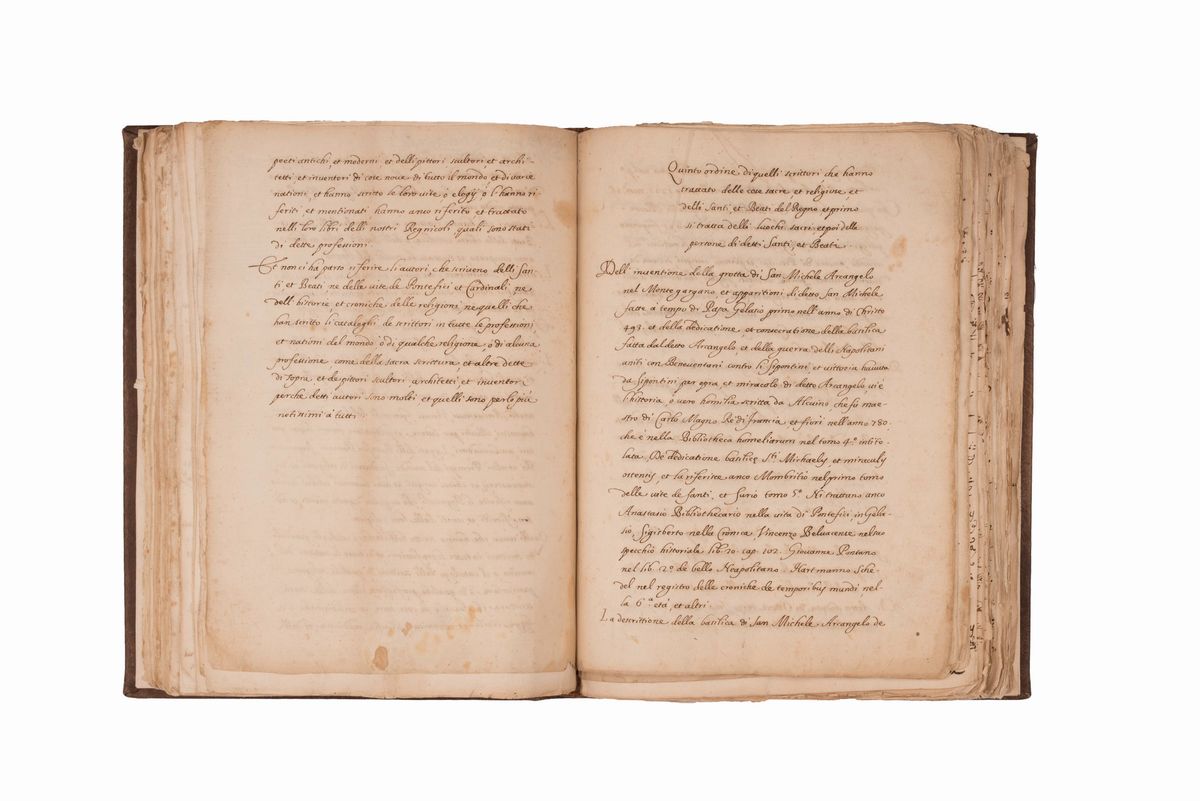 poeti antichi, et moderni et delli pittori scultori, et archi-
tetti et inventori di cose nove di tutto il mondo et di varie
nationi, et hanno scritto le loro vite ò elogij ò l'hanno ri
feriti et mentionati hanno anco riferito et trattato
nelli loro libri delli nostri Regnicoli quali sono stati
di dette professioni.
Et non ci ha parso riferire li autori, che scriveno delli San-
ti et Beati ne delle vite de Pontefici et Cardinali, ne
dell'historie, et croniche delle religioni, ne quelli che
han scritto li cataloghi de scrittori in tutte le professioni,
et nationi del mondo ò di qualche religione ò di alcuna
professione come della sacra scrittura, et altre dette
di sopra et de pittori scultori architetti et inventori
perche detti autori sono molti et quelli sono per lo più
notissimi à tutti.
Quinto ordine di quelli scrittori che hanno
trattato delle cose sacre et religiose, et
delli Santi, et Beati del Regno et primo
si tratta delli luochi sacri et poi della
persone di detti Santi, et Beati.
Dell'inventione della grotta di San Michele Arcangelo
nel Monte gargano et apparitioni di detto San Michele
fatte a tempo di Papa Gelasio primo nell'anno di Christo
493. et della dedicatione et consecratione della basilica
fatta dal detto Arcangelo, et della guerra delli Napolitani
uniti con Beneventani contro li Sipontini et vittoria havuta
da Sipontini per opra et miracolo di detto Arcangelo vi è
l'historia ò vero homilia scritta da Alcuino, che fù mae-
stro di Carlo Magno Rè di francia et fiorì nell'anno 780.
che è nella Bibliotheca homeliarum nel tomo 4º intito
lata, De dedicatione basilicę Sti Michaelis, et miraculis
ostentis, et la riferisce anco Mombritio nel primo tomo
delle vite de santi, et surio tomo 5º. Ni trattano anco
Anastasio Bibliothecario nella vita di Pontefici, in Gela-
sio, Sigisberto nella Cronica, Vincenzo Belvacense nel suo
specchio historiale lib. 20. cap. 102. Giovanne Pontano
nel lib. 2º de bello Neapolitano. Hartmanno Sche
del nel registro delle croniche de temporibus mundi nel-
la 6ª età, et altri.
La descrittione della basilica di San Michele Arcangelo de